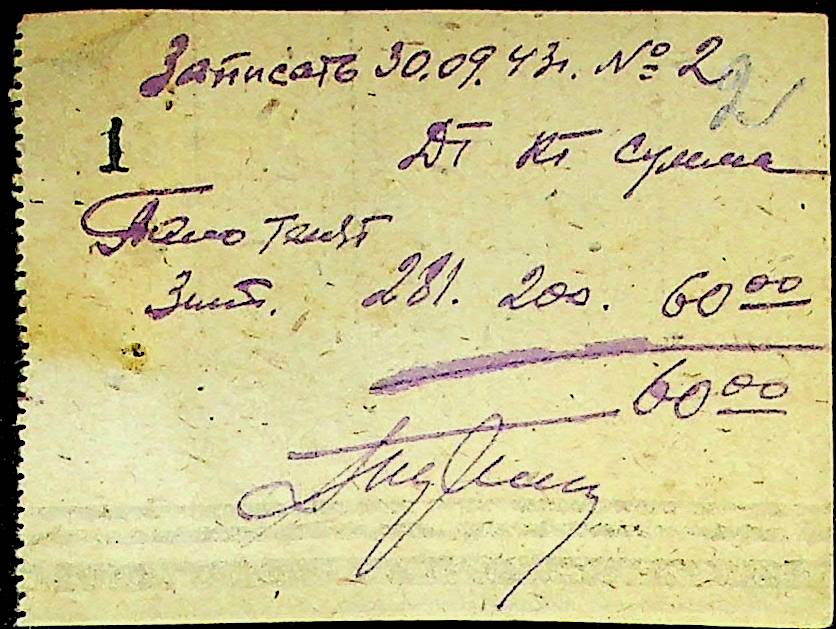 Записать 30.09.43г. № 2
2
1
Дт Кт Сумма
3 шт. 281. 200. 60 00
60 00